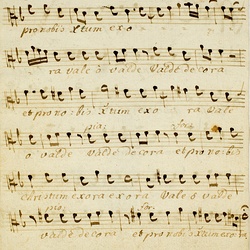 pro nobis Xtum exo
ra vale ô valde valde decora
et pro no bis Xtum exo ra vale
pia: for:
o valde valde decora et pro nobis
christum exora exora vale ô valde
pia: for:
valde decora et pro nobis Xtum exora